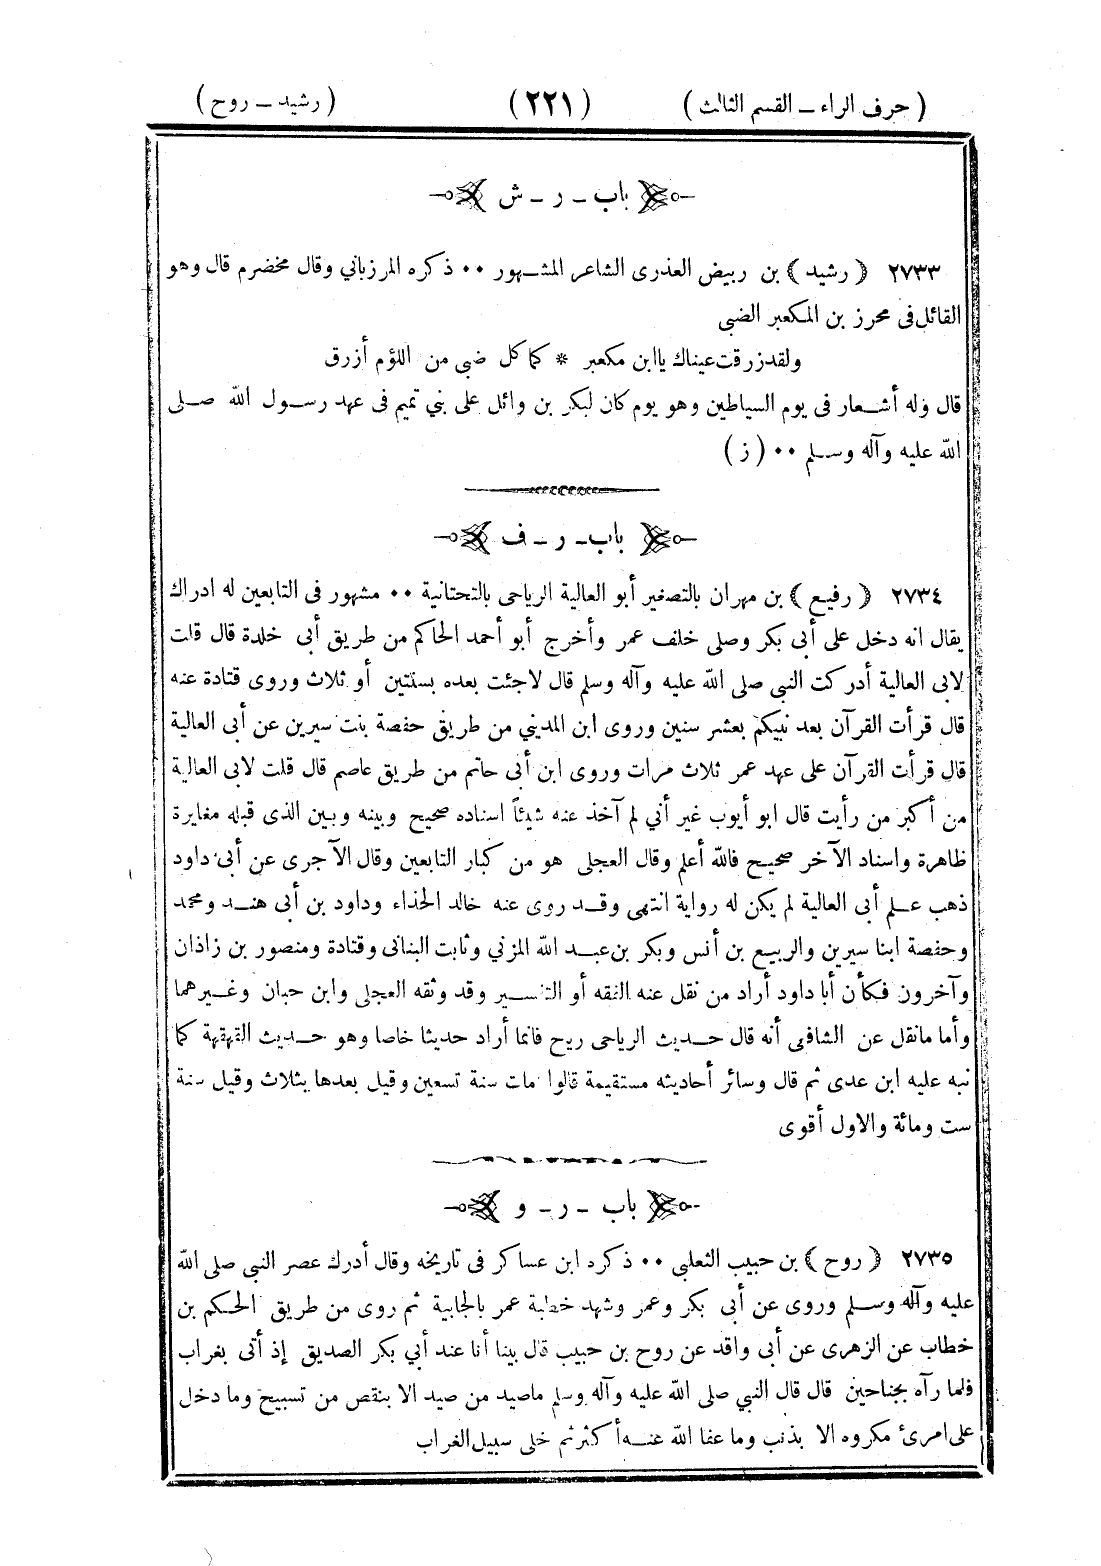 ( حرف الراء ـ القسم الثالث ) ( ٢٢١ ) ( رشيد ـ روح )
باب ـ ر ـ ش
٢٧٣٣ ( رشيد ) بن ربيض العذرى الشاعر المشهور ٠٠ ذكره المرزباني وقال مخضرم قال وهو
القائل فى محرز بن المكعبر الضبى
ولقد زرقت عيناك ياابن مكعبر * كما كل ضبى من اللؤم أزرق
قال وله أشعار فى يوم السياطين وهو يوم كان لبكر بن وائل على بني تميم فى عهد رسول الله صلى
الله عليه وآله وسلم ٠٠ ( ز )
باب ـ ر ـ ف
٢٧٣٤ ( رفيع ) بن مهران بالتصغير أبو العالية الرياحى بالتحتانية ٠٠ مشهور فى التابعين له ادراك
يقال انه دخل على أبى بكر وصلى خلف عمر وأخرج أبو أحمد الحاكم من طريق أبى خلدة قال قلت
لابى العالية أدركت النبي صلى الله عليه وآله وسلم قال لا جئت بعده بسنتين أو ثلاث وروى قتادة عنه
قال قرأت القرآن بعد نبيكم بعشر سنين وروى ابن المديني من طريق حفصة بنت سيرين عن أبى العالية
قال قرأت القرآن على عهد عمر ثلاث مرات وروى ابن أبى حاتم من طريق عاصم قال قلت لابى العالية
من أكبر من رأيت قال ابو أيوب غير أني لم آخذ عنه شيئاً اسناده صحيح وبينه وبين الذى قبله مغايرة
ظاهرة واسناد الآخر صحيح فالله أعلم وقال العجلى هو من كبار التابعين وقال الآجرى عن أبى داود
ذهب علم أبى العالية لم يكن له رواية انتهى وقد روى عنه خالد الحذاء وداود بن أبى هند ومحمد
وحفصة ابنا سيرين والربيع بن أنس وبكر بن عبد الله المزني وثابت البنانى وقتادة ومنصور بن زاذان
وآخرون فكأن أبا داود أراد من نقل عنه الفقه أو التفسير وقد وثقه العجلى وابن حبان وغيرهما
وأما مانقل عن الشافى أنه قال حديث الرياحى ريح فانما أراد حديثا خاصا وهو حديث القهقهة كما
نبه عليه ابن عدى ثم قال وسائر أحاديثه مستقيمة قالوا مات سنة تسعين وقيل بعدها بثلاث وقيل سنة
ست ومائة والاول أقوى
باب ـ ر ـ و
٢٧٣٥ ( روح ) بن حبيب الثعلبى ٠٠ ذكره ابن عساكر فى تاريخه وقال أدرك عصر النبى صلى الله
عليه وآله وسلم وروى عن أبى بكر وعمر وشهد خطبة عمر بالجابية ثم روى من طريق الحكم بن
خطاب عن الزهرى عن أبى واقد عن روح بن حبيب قال بينا أنا عند أبي بكر الصديق إذ أتى بغراب
فلما رآه بجناحين قال قال النبي صلى الله عليه وآله وسلم ماصيد من صيد الا بنقص من تسبيح وما دخل
على امرئ مكروه الا بذنب وما عفا الله عنه أكثر ثم خلى سبيل الغراب